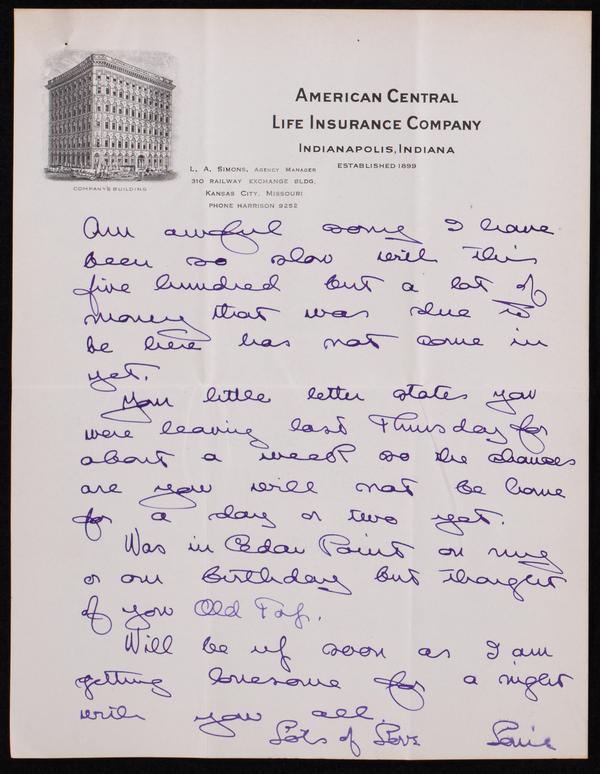 AMERICAN CENTRAL
LIFE INSURANCE COMPANY
INDIANAPOLIS, INDIANA
ESTABLISHED 1899
COMPANY'S BUILDING
L. A. SIMONS, AGENCY MANAGER
310 RAILWAY EXCHANGE BLDG.
KANSAS CITY, MISSOURI
PHONE HARRISON 9252
Am awful sorry I have
been so slow with this
five hundred but a lot of
money that was due to
be here has not come in
yet.
Your little letter states you
were leaving last Thursday for
about a week so the chances
are you will not be home
for a day or two yet.
Was in Cedar Point on my
or our Birthday but thought
of you Old
Will be up soon as I am
getting lonesome for a night
with you all.
Lots of Love